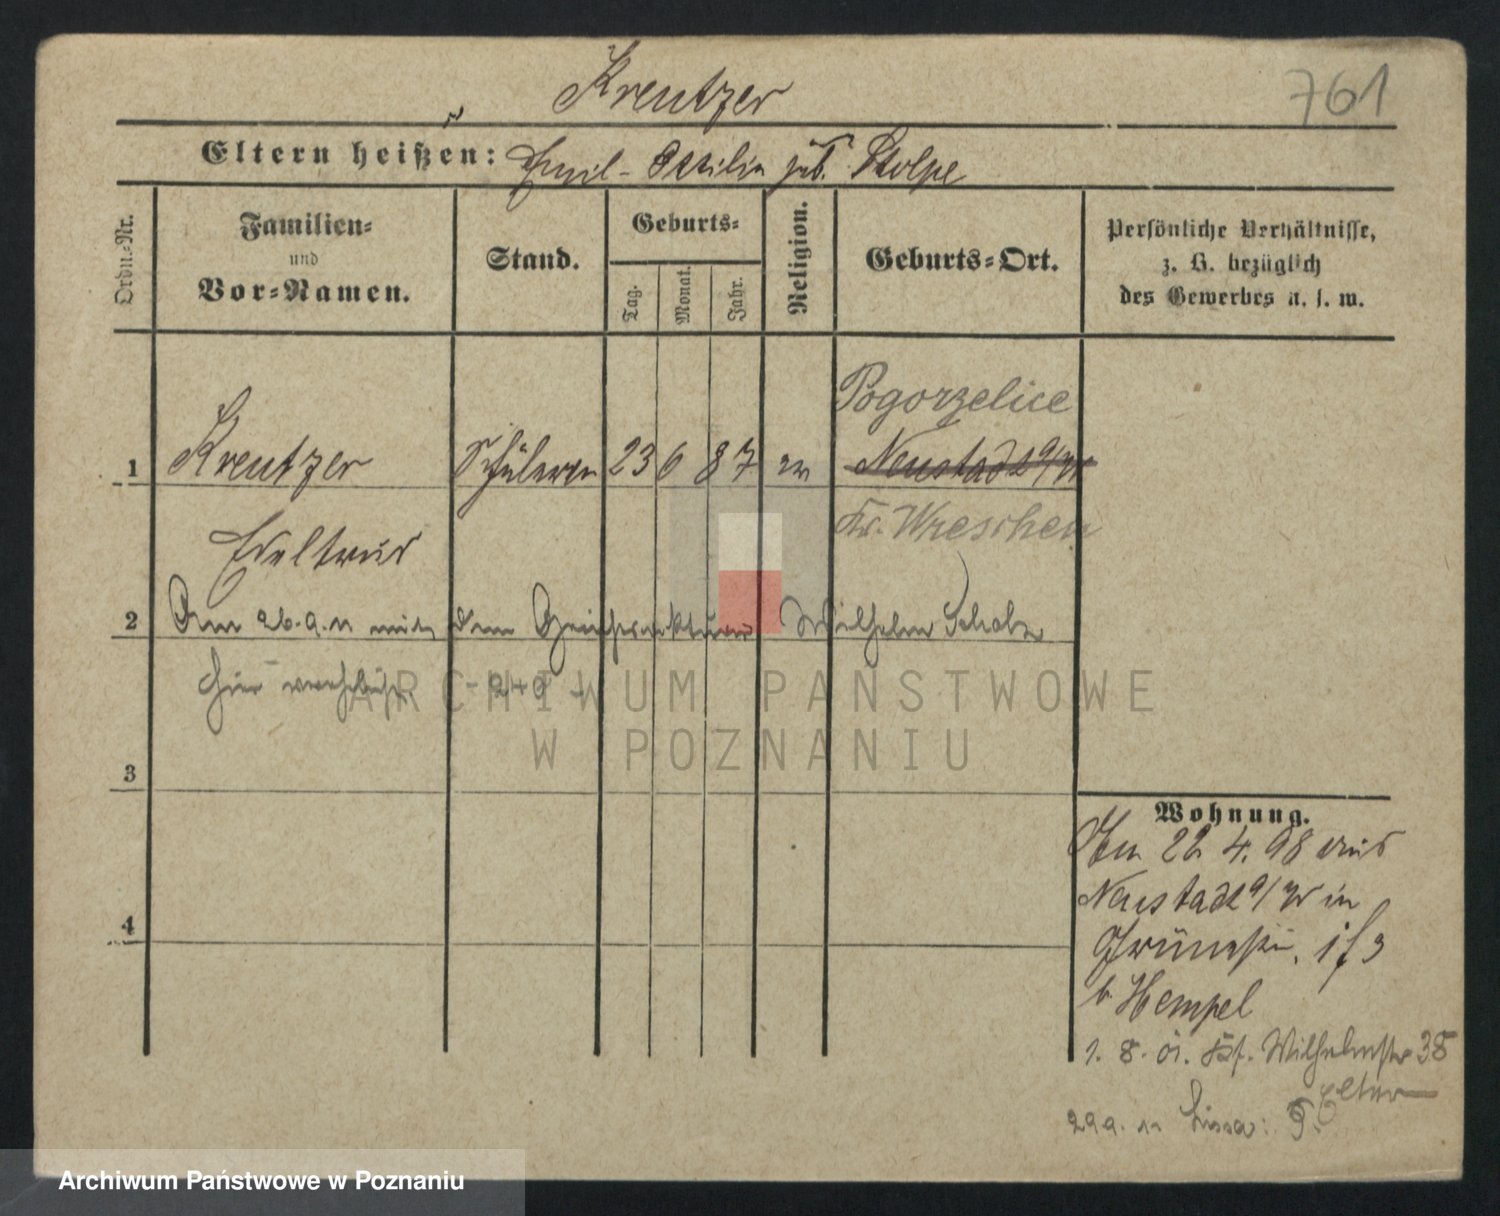 Kreutzer
761
Eltern heißen: Emil - Ottilie geb. Stolpe
Ordn.-Nr.
Familien-
und
Vor-Namen.
Stand.
Geburts-
Tag.
Monat.
Jahr.
Religion.
Geburts-Ort.
Persönliche Verhältnisse,
z. B. bezüglich
des Gewerbes u. s. w.
Pogorzelice
1 Kreutzer Schülerin 23 6 87 ev Neustadt a/W
Kr. Wreschen
Edeltrud
2 Am 26.9.11 mit dem Wilhelm Scholz
hier verehelicht
ARCHIWUM PAŃSTWOWE
W POZNANIU
3
4
Wohnung.
Am 22 4. 98 aus
Neustadt a/W in
b Hempel
1. 8. 01. Wilhelmstr 38
Eltern
29.9. 11 Lissa:
Archiwum Państwowe w Poznaniu